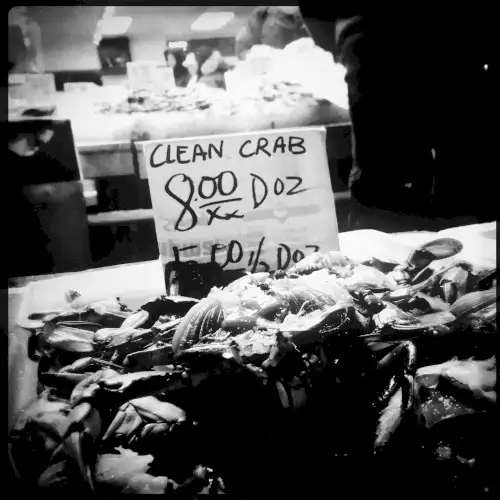 CLEAN CRAB
8.00 DOZ
XX
½ DOZ